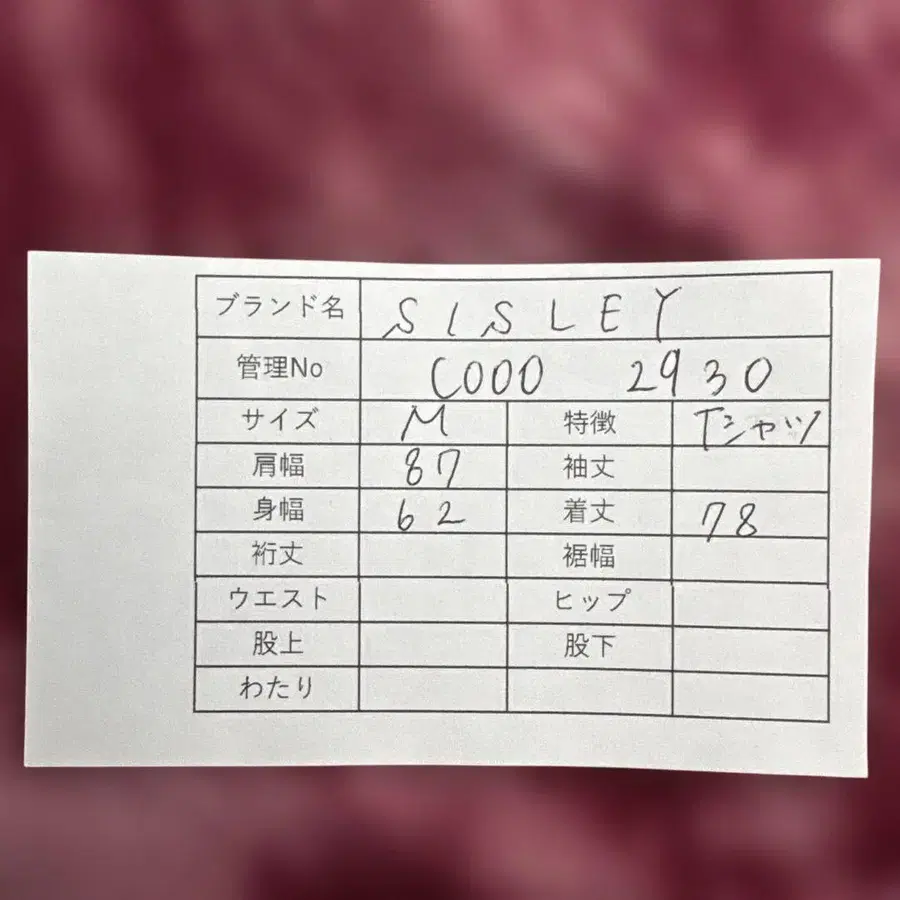 ブランド名 SISLEY
管理No C000 2930
サイズ M 特徴 Tシャツ
肩幅 87 袖丈
身幅 62 着丈 78
裄丈 裾幅
ウエスト ヒップ
股上 股下
わたり